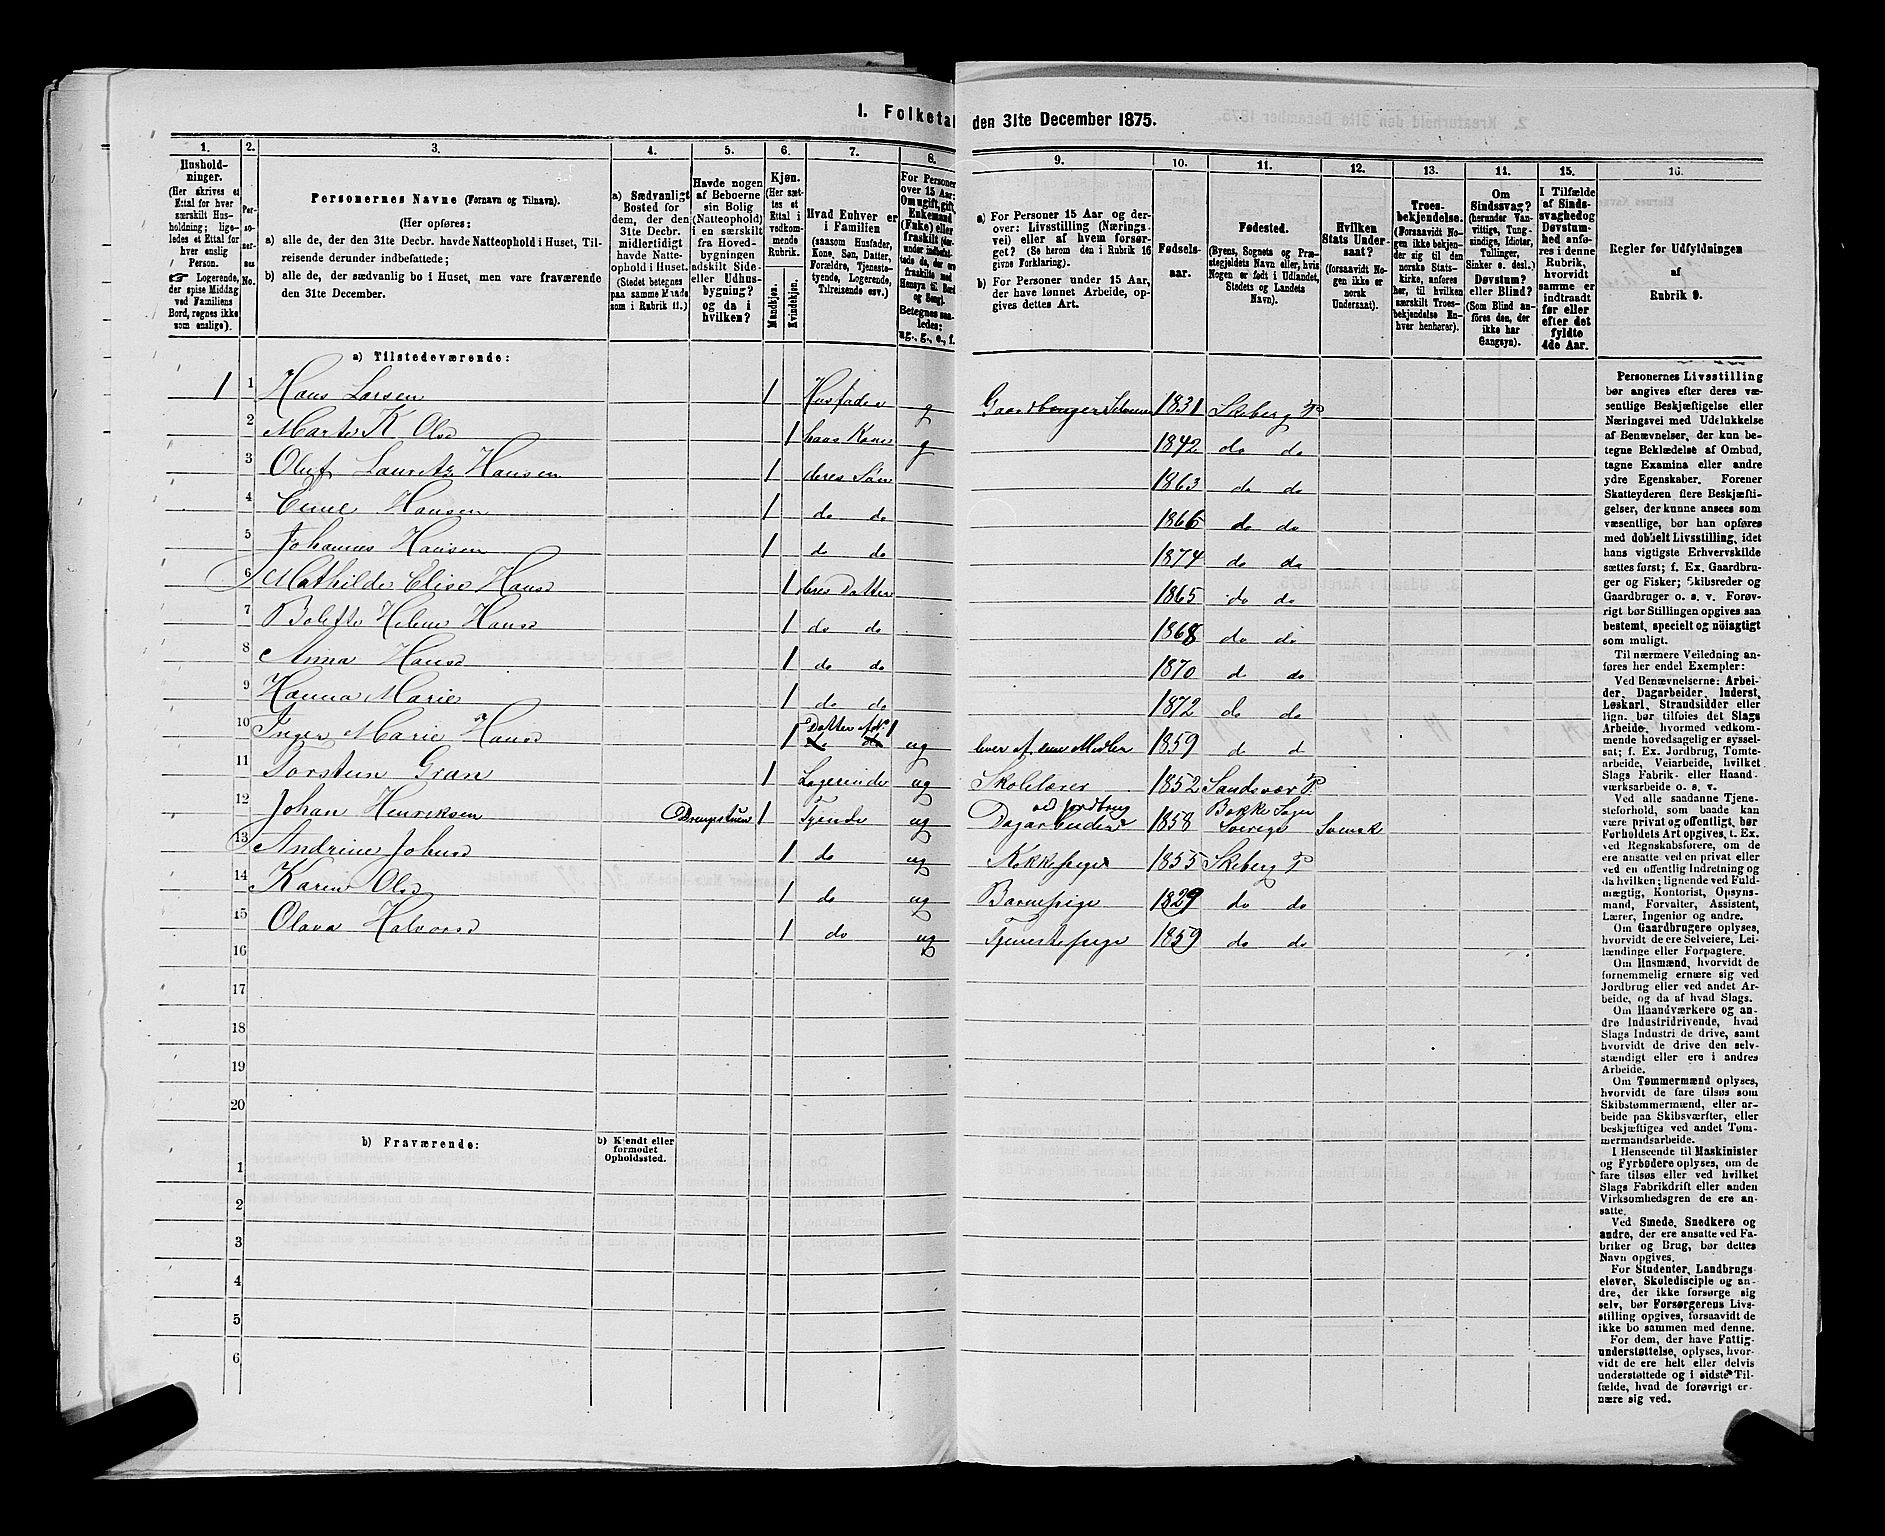 1. Folketal
den 31te December 1875.
1.
Hushold-
ninger.
(Her skrives et
Ettal for hver
særskilt Hus-
holdning; lige-
ledes et Ettal for
hver enslig
Person.
☞ Logerende,
der spise Middag
ved Familiens
Bord, regnes ikke
som enslige).
2.
Per-
so-
ner-
nes
No.
3.
Personernes Navne (Fornavn og Tilnavn).
(Her opføres:
a) alle de, der den 31te Decbr. havde Natteophold i Huset, Til-
reisende derunder indbefattede;
b) alle de, der sædvanlig bo i Huset, men vare fraværende
den 31te December.
4.
a) Sædvanligt
Bosted for
dem, der den
31te Decbr.
midlertidigt
havde Natte-
ophold i Huset.
(Stedet betegnes
paa samme Maade
som i Rubrik 11.)
5.
Havde nogen
af Beboerne
sin Bolig
(Natteophold)
i en særskilt
fra Hoved-
bygningen
adskilt Side-
eller Udhus-
bygning?
og da i
hvilken?
6.
Kjøn.
(Her sæt-
tes et
Ettal i
vedkom-
mende
Rubrik.
Mandkjøn.
Kvindekjøn.
7.
Hvad Enhver er
i Familien
(saasom Husfader,
Kone, Søn, Datter,
Forældre, Tjeneste-
tyende, Logerende,
Tilreisende osv.)
8.
For Personer
over 15 Aar:
Om ugift, gift,
Enkemand
(Enke) eller
fraskilt
Betegnes saa-
ledes:
ug., g., e., f.
9.
a) For Personer 15 Aar og der-
over: Livsstilling (Nærings-
vei) eller af hvem forsør-
get? (Se herom den i Rubrik 16
givne Forklaring).
b) For Personer under 15 Aar,
der have lønnet Arbeide, op-
gives dettes Art.
10.
Fødsels-
aar.
11.
Fødested.
(Byens, Sognets og Præ-
stegjeldets Navn eller, hvis
Nogen er født i Udlandet,
Stedets og Landets
Navn).
12.
Hvilken
Stats Under-
saat?
(forsaavidt No-
gen ikke er
norsk
Undersaat).
13.
Troes-
bekjendelse.
(Forsaavidt No-
gen ikke bekjen-
der sig til den
norske Stats-
kirke, anføres
her, til hvilken
særskilt Troes-
bekjendelse En-
hver henhører).
14.
Om
Sindssvag?
(herunder Van-
vittige, Tung-
sindige, Idioter,
Tullinger,
Sinker o. desl.)
Døvstum?
eller Blind?
(Som Blind an-
føres den, der
ikke har
Gangsyn).
15.
I Tilfælde
af Sinds-
svaghed og
Døvstum-
hed anfø-
res i denne
Rubrik,
hvorvidt
samme er
indtraadt
før eller
efter det
fyldte
4de Aar.
16.
Regler for Udfyldningen
af
Rubrik 9.
a) Tilstedeværende:
1 1 Hans Larsen 1 Husfader g Gaardbruger Selveier 1831 Skeberg P
2 Marte K Olsd 1 hans Kone g 1842 do do
3 Oluf Lauritz Hansen 1 deres Søn 1863 do do
4 Emil Hansen 1 do do 1866 do do
5 Johannes Hansen 1 do do 1874 do do
6 Mathilde Elise Hansd 1 deres Datter 1865 do do
7 Bolette Helene Hansd 1 do do 1868 do do
8 Anna Hansd 1 do do 1870 d do
9 Hanna Marie 1 do do 1872 do do
10 Inger Marie Hansd 1 Datter af No. 1 ug lever af sine Midler 1859 d d
11 Torsten Gran 1 Logerende ug Skolelærer 1852 Sandsvær P.
12 Johan Henriksen Drengestuen 1 Tjende ug Dagarbeider ved Jordbrug 1858 Bokke Sogn Sverige Svensk
13 Andrine Johnsd 1 do ug Kokkepige 1855 Skeberg P
14 Karen Olsd 1 do ug Barnepige 1829 do do
15 Olava Halvorsd 1 do ug Tjenestepige 1859 do do
16
17
18
19
20
b) Fraværende:
b) Kjendt eller
formodet
Opholdssted.
1
2
3
4
5
6
Personernes Livsstilling
bør angives efter deres væ-
sentlige Beskjæftigelse eller
Næringsvei med Udelukkelse
af Benævnelser, der kun be-
tegne Beklædelse af Ombud,
tagne Examina eller andre
ydre Egenskaber. Forener
Skatteyderen flere Beskjæfti-
gelser, der kunne ansees som
væsentlige, bør han opføres
med dobbelt Livsstilling, idet
hans vigtigste Erhvervskilde
sættes først; f. Ex. Gaardbru-
ger og Fisker; Skibsreder og
Gaardbruger o. s. v. Forøv-
rigt bør Stillingen opgives saa
bestemt, specielt og nöiagtigt
som muligt.
Til nærmere Veiledning an-
føres her endel Exempler:
Ved Benævnelserne: Arbei-
der, Dagarbeider, Inderst,
Løskarl, Strandsidder eller
lign. bør tilføies det Slags
Arbeide, hvormed vedkom-
mende hovedsagelig er syssel-
sat; f. Ex. Jordbrug, Tomte-
arbeide, Veiarbeide, hvilket
Slags Fabrik- eller Haand-
værksarbeide o. s. v.
Ved alle saadanne Tjene-
steforhold, som baade kan
være privat og offentligt, bør
Forholdets Art opgives, t. Ex.
ved Regnskabsførere, om de
ere ansatte ved en privat eller
ved en offentlig Indretning og
da hvilken; lignende ved Fuld-
mægtig, Kontorist, Opsyns-
mand, Forvalter, Assistent,
Lærer, Ingeniør og andre.
Om Gaardbrugere oplyses,
hvorvidt de ere Selveiere, Lei-
lændinge eller Forpagtere.
Om Husmænd, hvorvidt de
fornemmelig ernære sig ved
Jordbrug eller ved andet Ar-
beide, og da af hvad Slags.
Om Haandværkere og an-
dre Industridrivende, hvad
Slags Industri de drive, samt
hvorvidt de drive den selv-
stændigt eller ere i andres
Arbeide.
Om Tømmermænd oplyses,
hvorvidt de fare tilsøs som
Skibstømmermænd, eller ar-
beide paa Skibsværfter, eller
beskjæftiges ved andet Tøm-
mermandsarbeide.
I Henseende til Maskinister
og Fyrbødere oplyses, om de
fare tilsøs eller ved hvilket
Slags Fabrikdrift eller anden
Virksomhedsgren de ere an-
satte.
Ved Smede, Snedkere og
andre, der ere ansatte ved Fa-
briker og Brug, bør dettes
Navn opgives.
For Studenter, Landbrugs-
elever, Skoledisciple og an-
dre, der ikke forsørge sig
selv, bør Forsørgerens Livs-
stilling opgives, forsaavidt de
ikke bo sammen med denne.
For dem, der have Fattig-
understøttelse, oplyses, hvor-
vidt de ere helt eller delvis
understøttede og i sidste Til-
fælde, hvad de forøvrigt er-
nære sig ved.